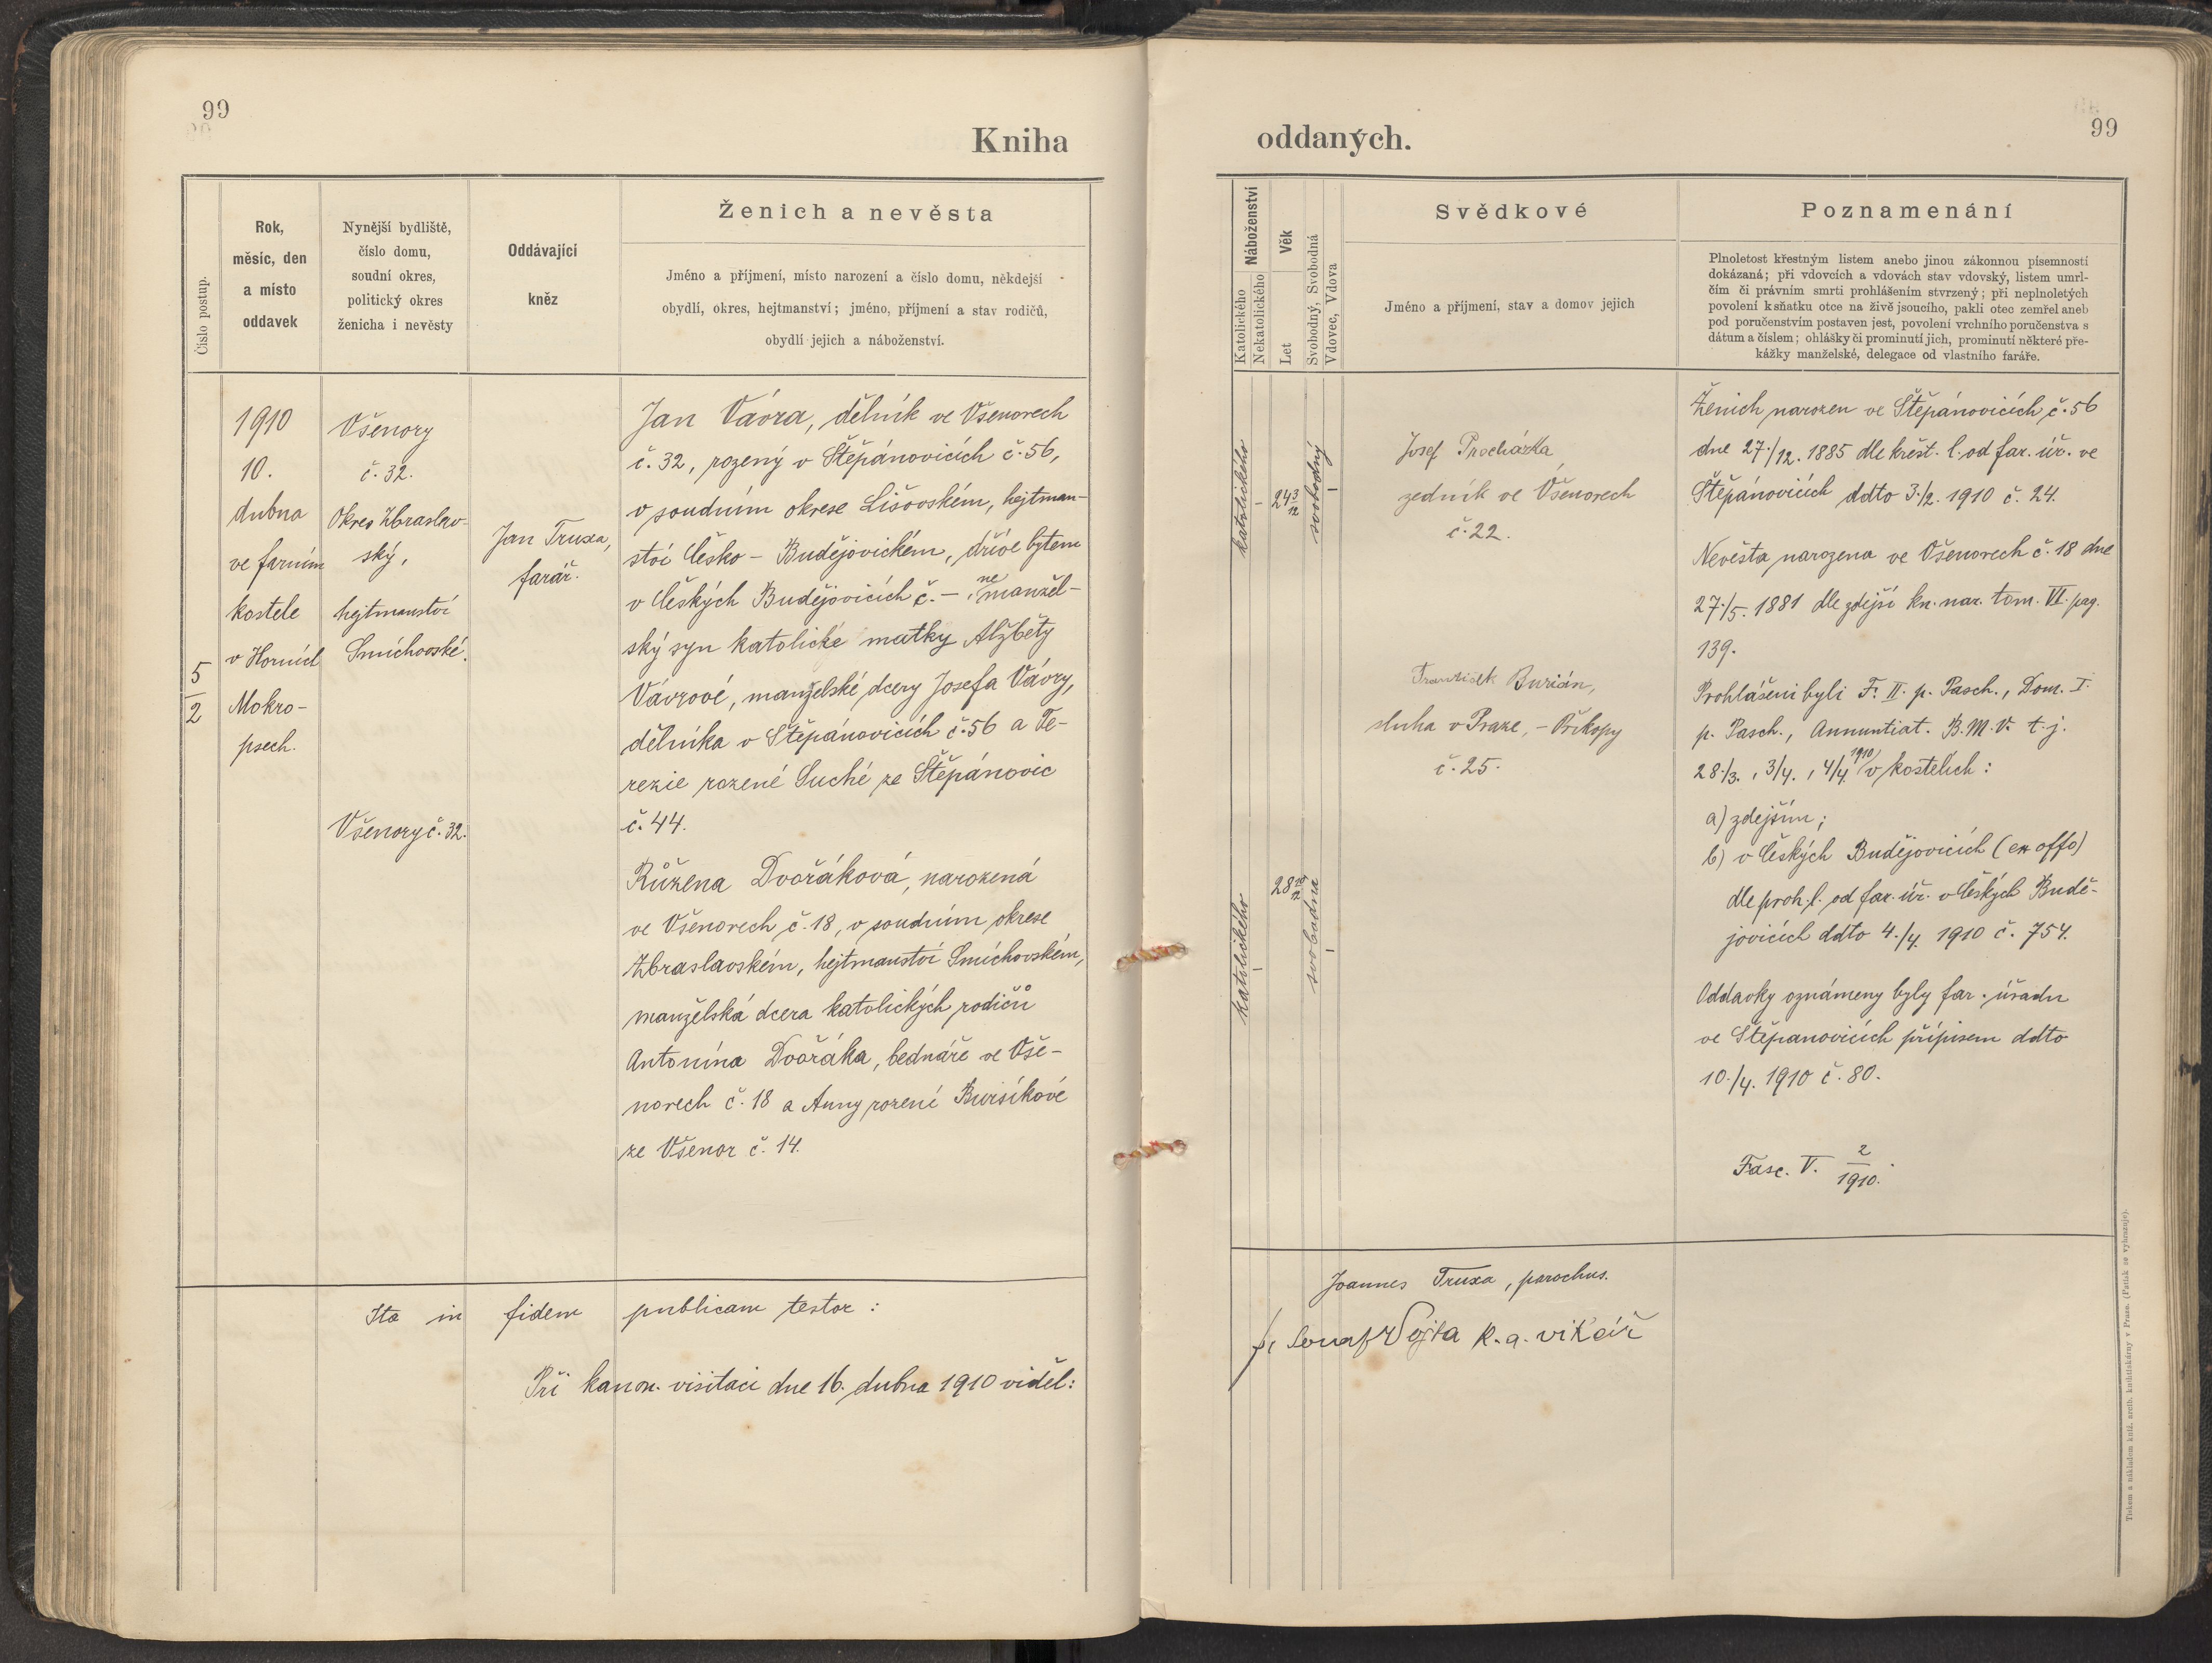 99
Kniha
Číslo postup.
Rok,
měsíc, den
a místo
oddavek
Nynější bydliště,
číslo domu,
soudní okres,
politický okres
ženicha i nevěsty
Oddávající
kněz
Ženich a nevěsta
Jméno a příjmení, místo narození a číslo domu, někdejší
obydlí, okres, hejtmanství; jméno, příjmení a stav rodičů,
obydlí jejich a náboženství.
5
2
1910
10.
dubna
ve farním
kostele
v Horních
Mokro-
psech.
Všenory
č. 32.
Okres Zbraslav-
ský,
hejtmanství
Smíchovské.
Všenory č. 32.
Jan Truxa,
farář.
Jan Vávra, dělník ve Všenorech
č. 32, rozený v Štěpánovicích č. 56,
v soudním okrese Lišovském, hejtman-
ství Česko-Budějovickém, dříve bytem
v Českých Budějovicích č. –, nemanžel-
ský syn katolické matky Alžběty
Vávrové, manželské dcery Josefa Vávry,
dělníka v Štěpánovicích č. 56 a Te-
rezie rozené Suché ze Štěpánovic
č. 44.
Růžena Dvořáková, narozená
ve Všenorech č. 18, v soudním okrese
Zbraslavském, hejtmanství Smíchovském,
manželská dcera katolických rodičů
Antonína Dvořáka, bednáře ve Vše-
norech č. 18 a Anny rozené Bursíkové
ze Všenor č. 14.
Ita in fidem publicam testor:
Při kanon. visitaci dne 16. dubna 1910 viděl:
99
oddaných.
Náboženství
Katolického
Nekatolického
Věk
Let
Svobodný, Svobodná
Vdovec, Vdova
Svědkové
Jméno a příjmení, stav a domov jejich
Poznamenání
Plnoletost křestným listem anebo jinou zákonnou písemností
dokázaná; při vdovcích a vdovách stav vdovský, listem umrl-
čím či právním smrti prohlášením stvrzený; při neplnoletých
povolení k sňatku otce na živě jsoucího, pakli otec zemřel aneb
pod poručenstvím postaven jest, povolení vrchního poručenstva s
dátum a číslem; ohlášky či prominutí jich, prominutí některé pře-
kážky manželské, delegace od vlastního faráře.
katolického
–
24 3/12
svobodný
–
katolického
–
28 10/12
svobodna
–
Josef Procházka,
zedník ve Všenorech
č. 22.
František Burián,
sluha v Praze, – Příkopy
č. 25.
Ženich narozen ve Štěpánovicích č. 56
dne 27./12. 1885 dle křest. l. od far. úř. ve
Štěpánovicích ddto 3./2. 1910 č. 24.
Nevěsta narozena ve Všenorech č. 18 dne
27./5. 1881 dle zdejší kn. nar. tom. VI. pag.
139.
Prohlášeni byli F. II. p. Pasch., Dom. I.
p. Pasch., Annuntiat. B. M. V. t. j.
28./3., 3/4., 4/4. 1910 v kostelích:
a) zdejším;
b) v Českých Budějovicích (ex offo)
dle proh. l. od far. úř. v Českých Budě-
jovicích ddto 4./4. 1910 č. 754.
Oddavky oznámeny byly far. úřadu
ve Štěpanovicích přípisem ddto
10./4. 1910 č. 80.
Fasc. V. 2/1910.
Joannes Truxa, parochus.
Vojta k. a. vikář
Tiskem a nákladem kníž. arcib. knihtiskárny v Praze. (Patisk se vyhrazuje).